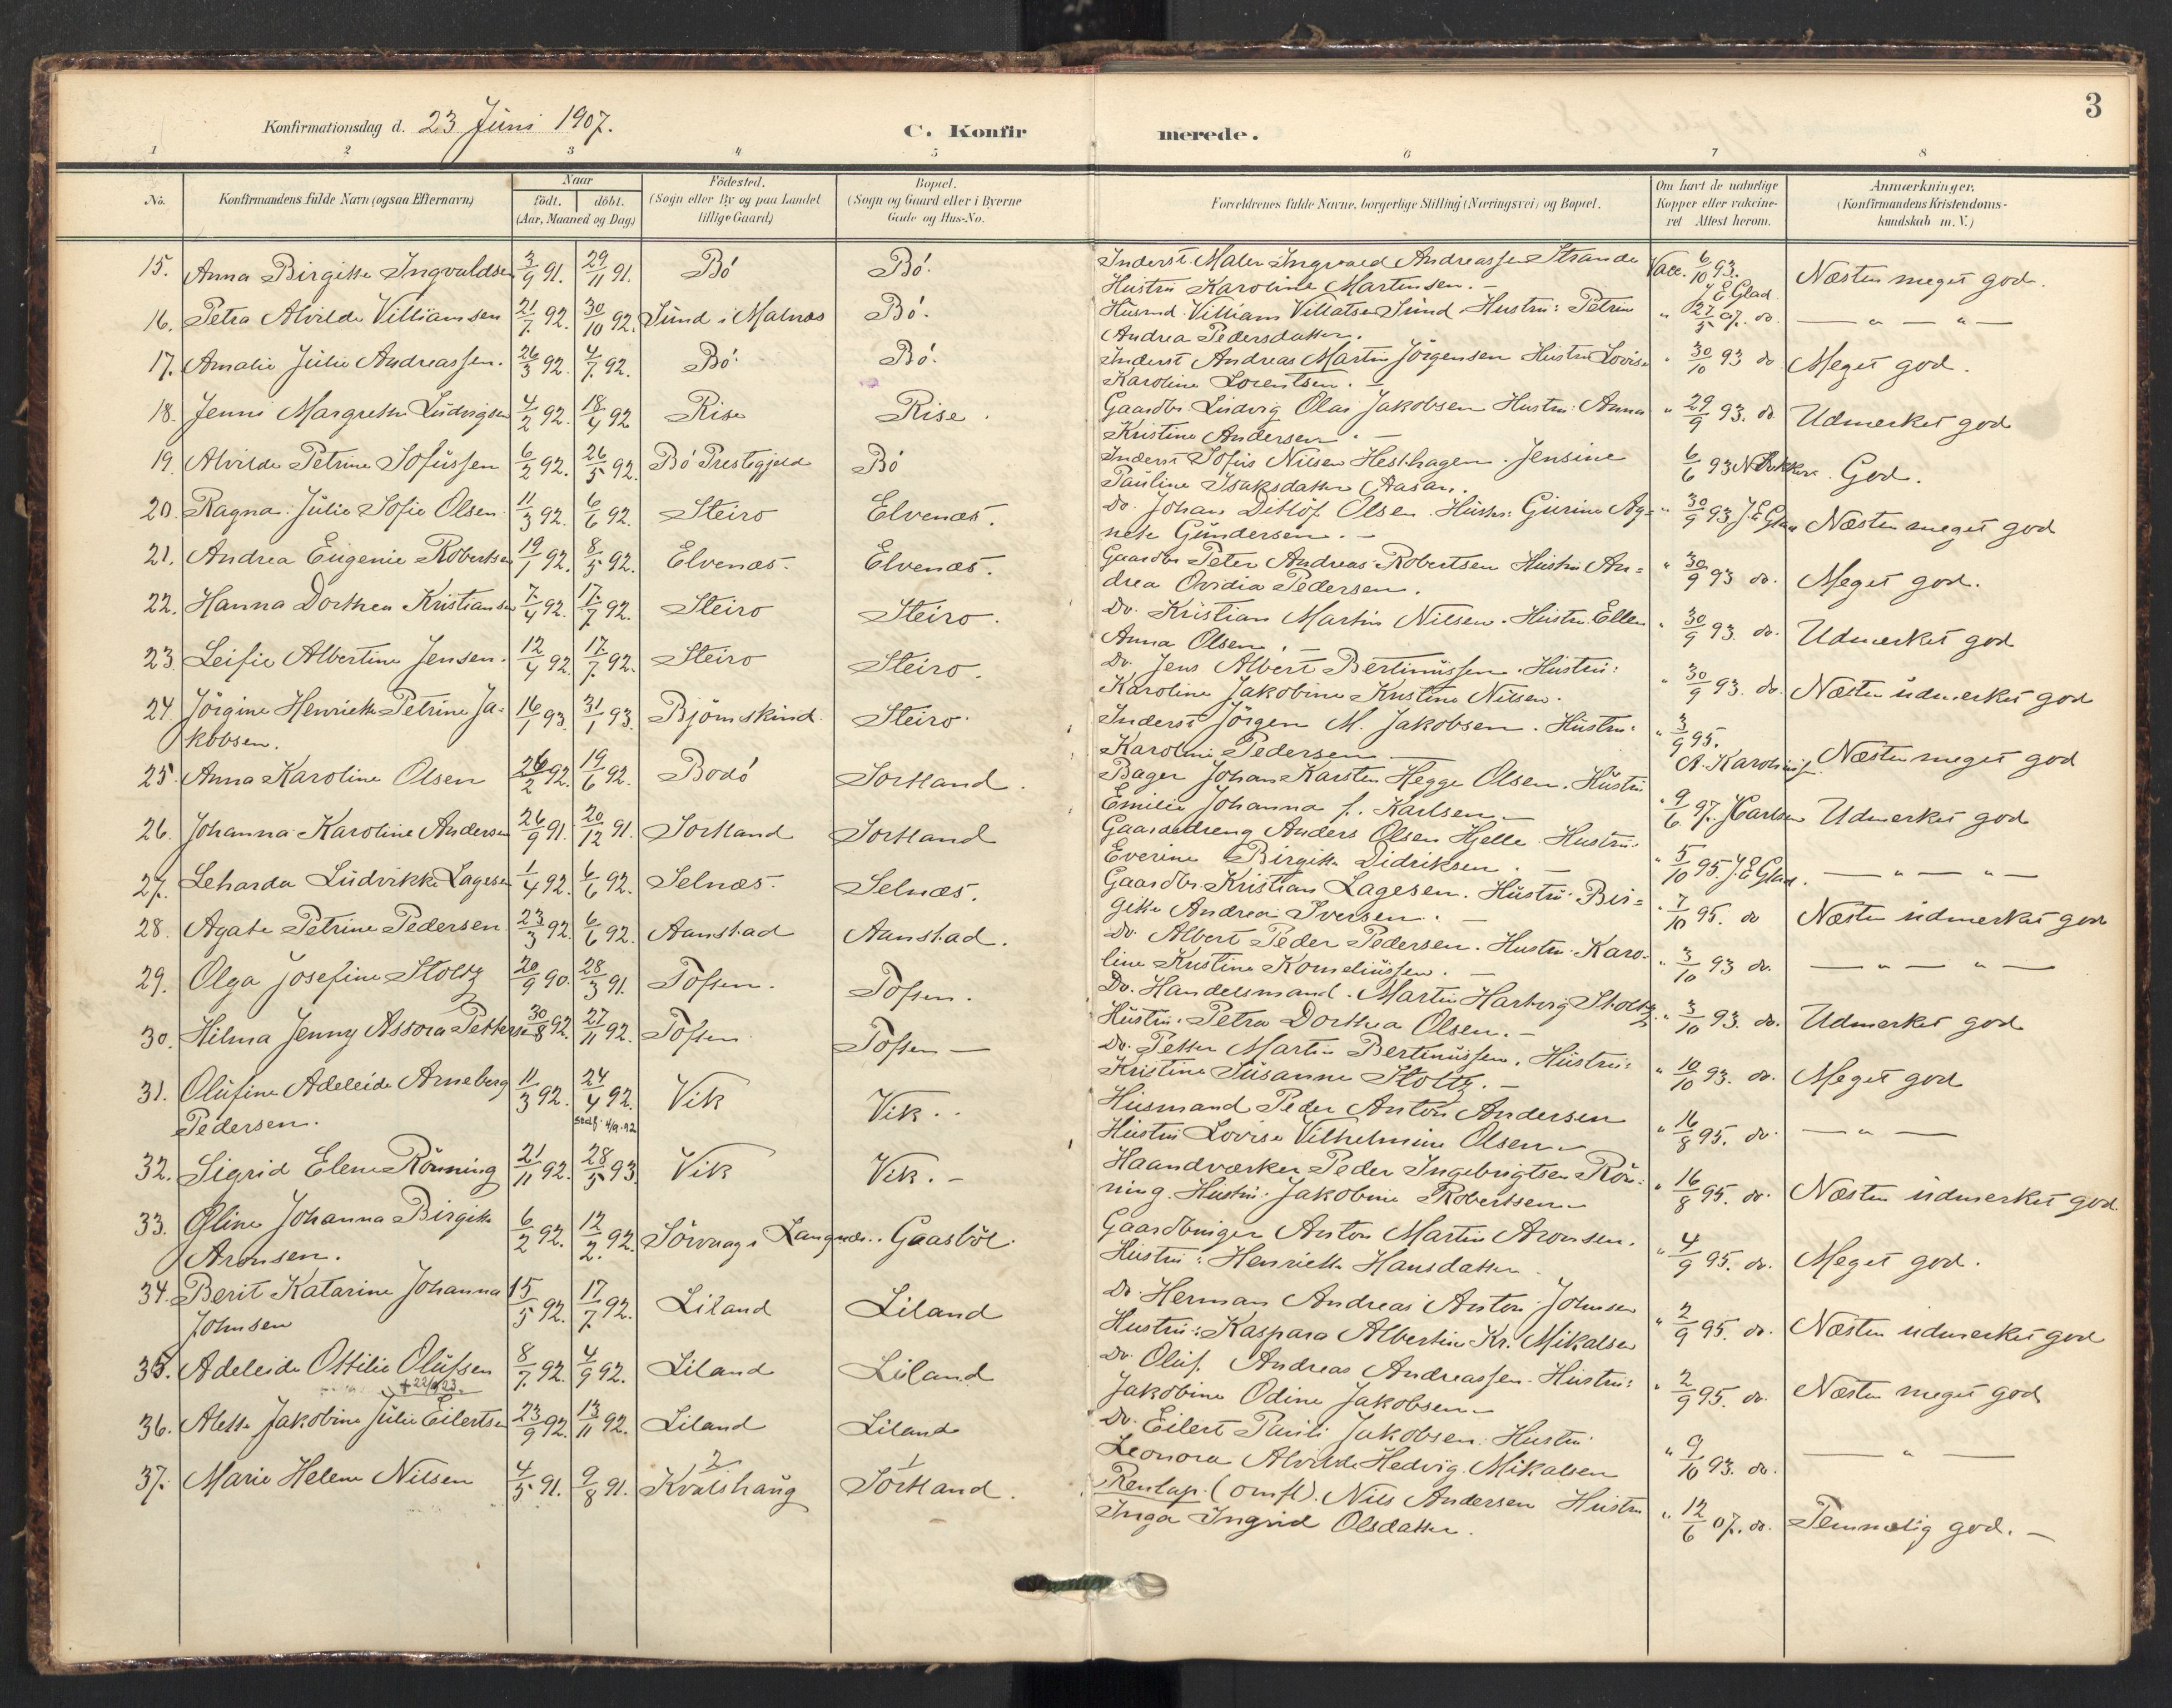 3
Konfirmationsdag d. 23 Juni 1907.
C. Konfirmerede.
1 2 3 4 5 6 7 8
No.
Konfirmandens fulde Navn (ogsaa Efternavn)
Naar
født. døbt.
(Aar, Maaned og Dag)
Födested.
(Sogn eller By og paa Landet
tillige Gaard)
Bopæl.
(Sogn og Gaard eller i Byerne
Gade og Hus-No.
Forældrenes fulde Navne, borgerlige Stilling (Næringsvei) og Bopæl.
Om havt de naturlige
Kopper eller vakcine-
ret Attest herom.
Anmærkninger.
(Konfirmandens Kristendoms-
kundskab m. V.)
15. Anna Birgitte Ingvaldsen 3/9 91. 29/11 91. Bö Bö. Inderst. Maler Ingvald Andreassen Strande Vacc. 6/10 93. Næsten meget god.
Hustru Karoline Martinsen. — J E Glad
16. Petra Alvilde Villiamsen 21/7 92. 30/10 92. Sund i Malnæs Bö. Husmd. Villiam Villatsen Sund. Hustru: Petrine " 27/5 07. do. — " — " —
Andrea Pedersdatter.
17. Amalie Julie Andreassen. 26/3 92. 4/7 92. Bö. Bö. Inderst Andreas Martin Jörgensen Hustru Lovise " 30/10 93 do. Meget god.
Karoline Lorentsen. —
18. Jenni Margrethe Ludvigsen 4/2 92. 18/4 92 Rise Rise. Gaardbr. Ludvig Olai Jakobsen Hustru: Anna " 29/9 93. do. Udmerket god
Kristine Andersen. —
19. Alvilde Petrine Sofussen 6/2 92. 26/5 92. Bö Prestegjeld Bö Inderst Sofus Nilsen Hesthagen. Jensine 6/6 93 God.
Pauline Isaksdatter Aasan.
20. Ragna Julie Sofie Olsen. 11/3 92. 6/6 92. Steiro Elvenæs. Do. Johan Ditlöf Olsen. Hustru: Gurine Ag= " 30/9 93 J. E Glad Næsten meget god
nete Gundersen. —
21. Andrea Eugenie Robertsen 19/1 92. 8/5 92. Elvenæs. Elvenæs. Gaardbr Peter Andreas Robertsen Hustru An= " 30/9 93 do. Meget god.
drea Ovidia Pedersen.
22. Hanna Dorthea Kristiansen 7/4 92. 17/7 92. Steiro Steiro. Do. Kristian Martin Nilsen. Hustru. Ellen " 30/9 93. do. Udmerket god
Anna Olsen. —
23. Leifie Albertine Jensen. 12/4 92. 17/7 92. Steiro Steiro. Do. Jens Albert Bertinussen. Hustru: " 30/9 93. do. Næsten udmerket god
Karoline Jakobine Kristine Nilsen.
24. Jörgine Henriette Petrine Ja- 16/1 93 31/1 93. Björnskind. Steiro. Inderst Jörgen M. Jakobsen. Hustru: " 3/9 95. Næsten meget god
kobsen. Karoline Pedersen —
25. Anna Karoline Olsen 26/2 92. 19/6 92. Bodö Sortland. Bager Johan Karsten Hegge Olsen. Hustru " 9/6 97. J Carlsen Udmerket god
Emilie Johanna f. Karlsen. —
26. Johanna Karoline Andersen 26/9 91. 20/12 91. Sortland Sortland Gaardsdreng Anders Olsen Hjelle. Hustru. " 5/10 95. J. E Glad. — " — " —
Everine Birgitte Didriksen. —
27. Leharda Ludvikke Lagesen 1/4 92. 6/6 92. Selnæs. Selnæs. Gaardbr. Kristian Lagesen. Hustru: Bir= " 7/10 95. do Næsten udmerket god
gitte Andrea Iversen. —
28. Agate Petrine Pedersen 23/3 92. 6/6 92. Aanstad Aanstad. Do. Albert Peder Pedersen. Hustru. Karo- " 3/10 93 do. — " — " —
line Kristine Korneliussen. —
29. Olga Josefine Stoltz 20/9 90. 28/3 91. Tofsen. Tofsen. Do. Handelsmand. Martin Hartvig Stoltz. " 3/10 93. do. Udmerket god
Hustru. Petra Dorthea Olsen. —
30. Hilma Jenny Assora Pettersen 30/8 92. 27/11 92. Tofsen Tofsen — Do. Petter Martin Bertinussen. Hustru: " 10/10 93. do. Meget god
Kristine Susanne Stoltz. —
31. Olufine Adeleide Arneberg 11/3 92. 24/4 92. Vik Vik.. Husmand Peder Anton Andersen " 16/8 95. do. — " —
Pedersen. Hustru Lovise Vilhelmine Olsen —
32. Sigrid Elene Rönning 21/11 92. 28/5 93. Vik Vik. — Haandværker Peder Ingebrigtsen Rön- " 16/8 95. do. Næsten udmerket god
ning. Hustru. Jakobine Robertsen —
33. Oline Johanna Birgitte 6/2 92. 12/2 92. Sörvaag i Langenes. Gaasböl. Gaardbruger Anton Martin Aronsen. " 4/9 95. do. Meget god.
Aronsen. Hustru: Henriette Hansdatter.
34. Berit Katarine Johanna 15/5 92. 17/7 92. Liland Liland Do. Herman Andreas Anton Johnsen " 2/9 95. do. Næsten udmerket god
Johnsen Hustru: Kaspara Albertine Kr. Mikalsen
35. Adeleide Ottilie Olufsen 8/7 92. 4/9 92. Liland Liland Do. Oluf Andreas Andreassen. Hustru: " 2/9 95. do. Næsten meget god
Jakobine Odine Jakobsen —
36. Alette Jakobine Julie Eilertsen 23/9 92. 13/11 92. Liland Liland Do. Eilert Pauli Jakobsen. Hustru " 9/10 93. do. — " —
Leonora Alvilde Hedvig Mikalsen
37. Marie Helene Nilsen 4/5 91. 9/8 91. Kvalshaug Sortland. Renlap. (omfl). Nils Andersen Hustru " 12/6 07. do. Temmelig god. —
Inga Ingrid Olsdatter.